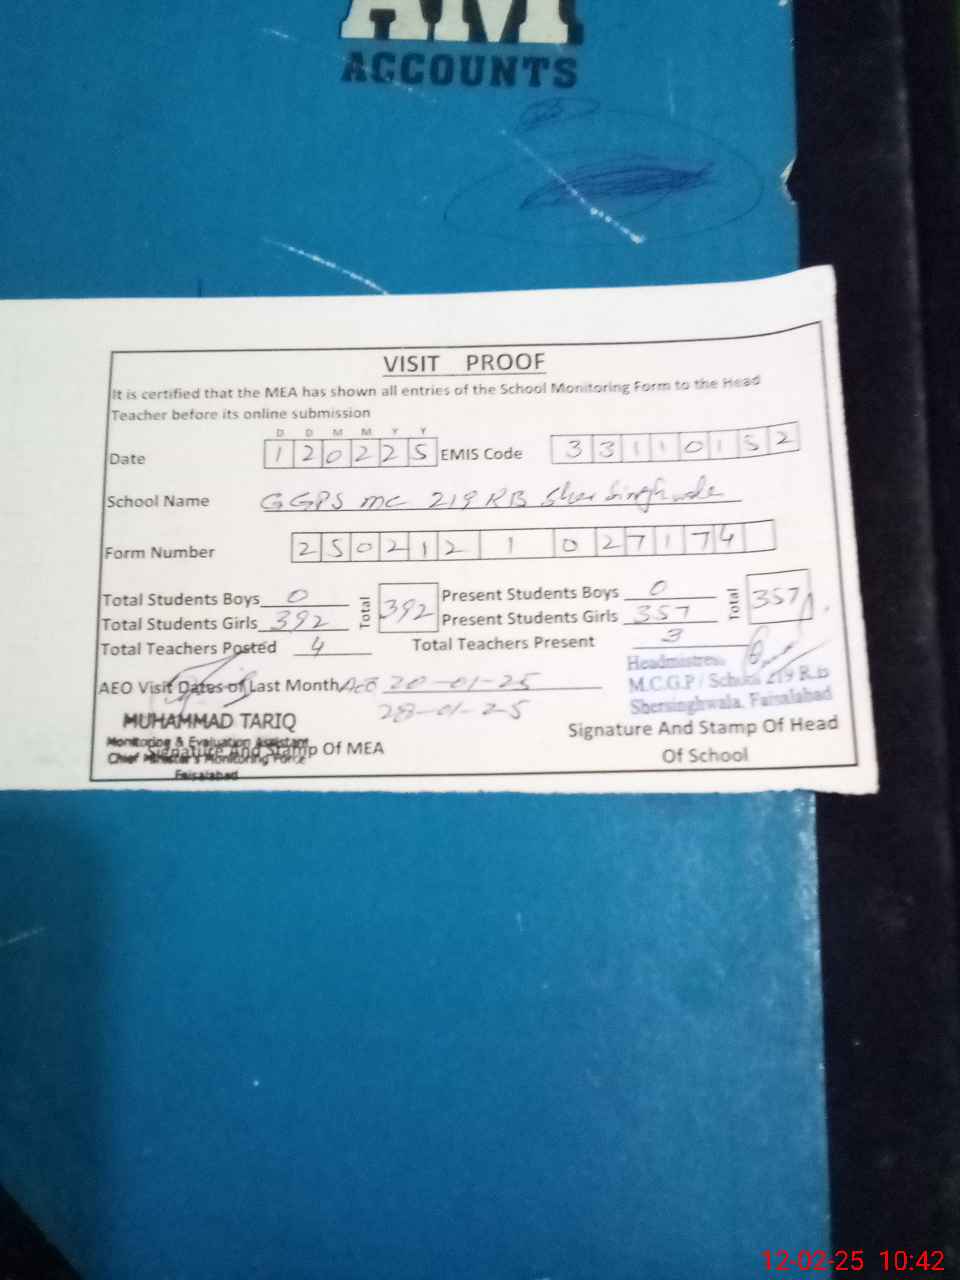 AM
ACCOUNTS
VISIT PROOF
It is certified that the MEA has shown all entries of the School Monitoring Form to the Head
Teacher before its online submission
D D M M Y Y
Date 1 2 0 2 2 5 EMIS Code 3 3 1 1 0 1 5 2
School Name GGPS MC 219 RB Sher Singh wala
Form Number 2 5 0 2 1 2 1 0 2 7 1 7 4
Total Students Boys 0 Total 392 Present Students Boys 0 Total 357
Total Students Girls 392 Present Students Girls 357
Total Teachers Posted 4 Total Teachers Present 3
AEO Visit Dates of Last Month AEO 20-01-25
28-01-25
Headmistress
M.C.G.P/School 219 R.B
Shersinghwala, Faisalabad
MUHAMMAD TARIQ
Monitoring & Evaluation Assistant
Chief Minister's Monitoring Force
Faisalabad
Signature And Stamp Of MEA
Signature And Stamp Of Head
Of School
12-02-25 10:42